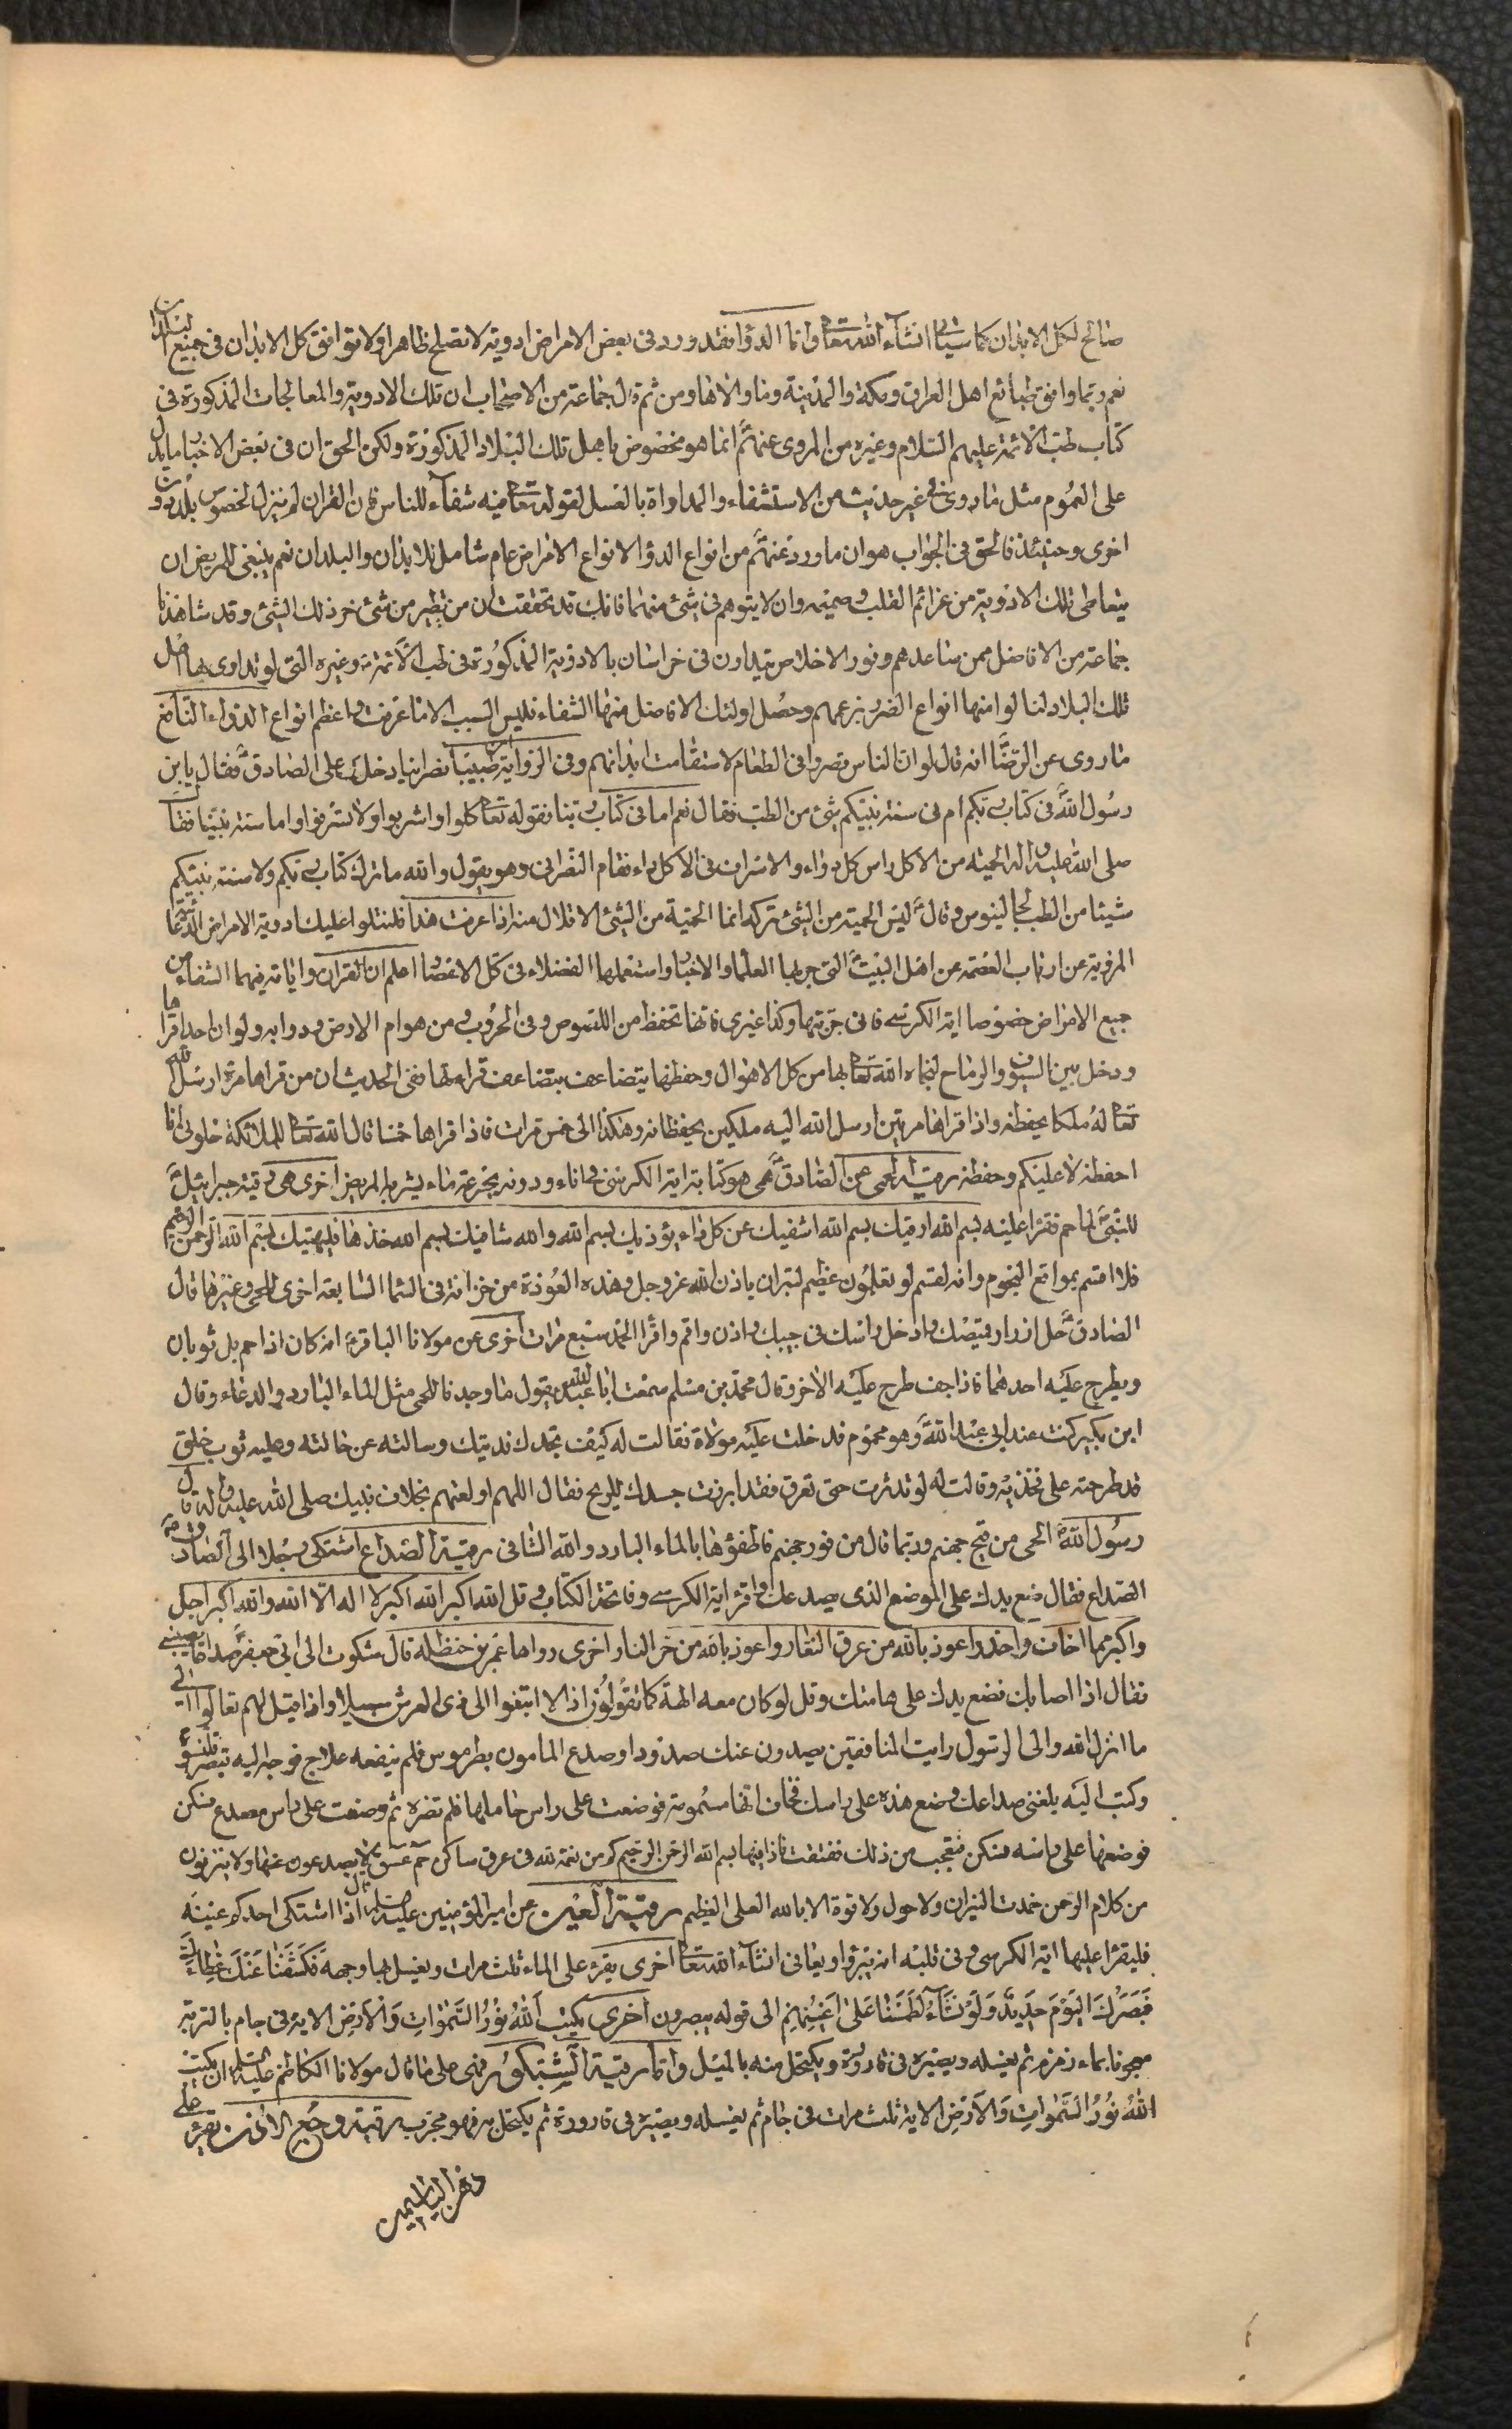 صالح لكل الابدان كما سياتى انشاء الله تعالى واما الدواء فقد ورد فى بعض الامراض ادوية لا تصلح ظاهرا ولا توافق كل الابدان فى جميع البلدان
نعم ربما وافق طبائع اهل العراق ومكة والمدينة وما والاها ومن ثم قال جماعة من الاصحاب ان تلك الادوية والمعالجات المذكورة فى
كتاب طب الائمة عليهم السلام وغيره من المروى عنهم انما هو مخصوص باهل تلك البلاد المذكورة ولكن الحق ان فى بعض الاخبار ما يدل
على العموم مثل ما روى فى غير حديث من الاستشفاء والمداواة بالعسل لقوله تعالى فيه شفاء للناس فان القران لم ينزل لخصوص بلد دون
اخرى وحينئذ فالحق فى الجواب هو ان ما ورد عنهم من انواع الدواء لانواع الامراض عام شامل للابدان والبلدان نعم ينبغى للمريض ان
يتعاطى تلك الادوية من عزائم القلب وصميمه وان لا يتوهم فى شئ منها فانك قد تحققت ان من تطير من شئ ضره ذلك الشئ وقد شاهدنا
جماعة من الافاضل ممن ساعدهم ونور الاخلاص يتداوون فى خراسان بالادوية المذكورة فى طب الائمة وغيره التى لو تداوى بها اهل
تلك البلاد لنالوا منها انواع الضرر بزعمهم وحصل اولئك الافاضل منها الشفاء فليس السبب الا ما عرفت واعظم انواع الدواء النافع
ما روى عن الرضا انه قال لو ان الناس قصروا فى الطعام لاستقامت ابدانهم وفى الرواية ان طبيبا نصرانيا دخل على الصادق فقال يابن
رسول الله فى كتاب ربكم ام فى سنة نبيكم شئ من الطب فقال نعم اما فى كتاب ربنا فقوله تعالى كلوا واشربوا ولا تسرفوا واما سنة نبينا فقال
صلى الله عليه واله الحمية من الاكل راس كل دواء والاسراف فى الاكل داء فقام النصرانى وهو يقول والله ما ترك كتاب ربكم ولا سنة نبيكم
شيئا من الطب لجالينوس وقال ليس الحمية من الشئ تركه انما الحمية من الشئ الاقلال منه اذا عرفت هذا فلنتلوا عليك ادوية الامراض
المروية عن ارباب العصمة عن اهل البيت التى جربها العلماء والاخيار واستعملها الفضلاء فى كل الاعصار اعلم ان القران واياته فيهما الشفاء من
جميع الامراض خصوصا اية الكرسى فانى جربتها وكذا غيرى فانها تحفظ من اللصوص وفى الحروب ومن هوام الارض ودوابه ولو ان احدا قراها
ودخل بين السيوف والرماح لنجاه الله تعالى بها من كل الاهوال وحفظها يتضاعف بتضاعف قرائتها ففى الحديث ان من قراها مرة ارسل الله
تعالى له ملكا يحفظه واذا قراها مرتين ارسل الله اليه ملكين يحفظانه وهكذا الى خمس مرات فاذا قراها خمسا قال الله تعالى للملائكة خلونى انا
احفظه لا عليكم وحفظه رقية الحمى عن الصادق هى هو كتابة اية الكرسى فى اناء ودونه بجرعة ماء يشربه المريض اخرى هى رقية جبرائيل
للنبى لما حم فقرا عليه بسم الله ارقيك بسم الله اشفيك عن كل داء يؤذيك بسم الله والله شافيك بسم الله خذها فليهنيك بسم الله الرحمن الرحيم
فلا اقسم بمواقع النجوم وانه لقسم لو تعلمون عظيم لتبران باذن الله عز وجل وهذه العوذة من خزانة فى السماء السابعة اخرى للحمى وغيرها قال
الصادق حل ازرار قميصك وادخل راسك فى جيبك واذن واقم واقرا الحمد سبع مرات اخرى عن مولانا الباقر انه كان اذا حم بل ثوبان
ويطرح عليه احدهما فاذا جف طرح عليه الاخر وقال محمد بن مسلم سمعت ابا عبد الله يقول ما وجدنا للحمى مثل الماء البارد والدعاء وقال
ابن بكير كنت عند ابى عبد الله وهو محموم فدخلت عليه مولاة فقالت له كيف تجدك فديتك وسالته عن حالته وعليه ثوب خلق
قد طرحته على فخذيه وقالت له لو تدثرت حتى تعرق فقد ابرزت جسدك للريح فقال اللهم اولعتهم بخلاف نبيك صلى الله عليه واله قال
رسول الله الحمى من قيح جهنم وربما قال من فور جهنم فاطفؤها بالماء البارد والله الشافى رقية الصداع اشتكى رجلا الى الصادق
الصداع فقال ضع يدك على الموضع الذى يصدعك واقرء اية الكرسى وفاتحة الكتاب وقل الله اكبر الله اكبر لا اله الا الله والله اكبر اجل
واكبر مما اخاف واحذر واعوذ بالله من عرق النعار واعوذ بالله من حر النار اخرى رواها عمر بن حنظلة قال شكوت الى ابى جعفر صداعا يصيبنى
فقال اذا اصابك فضع يدك على هامتك وقل لو كان معه الهة كما تقولون اذا لا ابتغوا الى ذى العرش سبيلا واذا قيل لهم تعالوا الى
ما انزل الله والى الرسول رايت المنافقين يصدون عنك صدودا وصدع المامون بطرسوس فلم ينفعه علاج فوجه اليه قيصر قلنسوة
وكتب اليه بلغنى صداعك وضع هذه على راسك فخاف انها مسمومة فوضعت على راس حاملها فلم تضره ثم وضعت على راس مصدع فسكن
فوضعها على راسه فسكن فتعجب من ذلك ففتقت فاذا فيها بسم الله الرحمن الرحيم كم من نعمة لله فى عرق ساكن حم عسق لا يصدعون عنها ولا ينزفون
من كلام الرحمن خمدت النيران ولا حول ولا قوة الا بالله العلى العظيم رقية العين عن امير المؤمنين عليه السلم قال اذا اشتكى احدكم عينه
فليقرا عليها اية الكرسى وفى قلبه انه يبرؤا ويعافى انشاء الله تعالى اخرى يقرء على الماء ثلث مرات ويغسل بها وجهه فكشفنا عنك غطاءك
فبصرك اليوم حديد ولو نشاء لطمسنا على اعينهم الى قوله يبصرون اخرى يكتب الله نور السموات والارض الاية فى جام بالتربة
معجونا بماء زمزم ثم يغسله ويصيره فى قارورة ويكتحل منه بالميل واما رقية الشبكور فهى على ما قال مولانا الكاظم عليه السلم ان يكتب
الله نور السموات والارض الاية ثلث مرات فى جام ثم يغسله ويصيره فى قارورة ثم يكتحل به فهو مجرب رقية وجع الاذن تقرء على